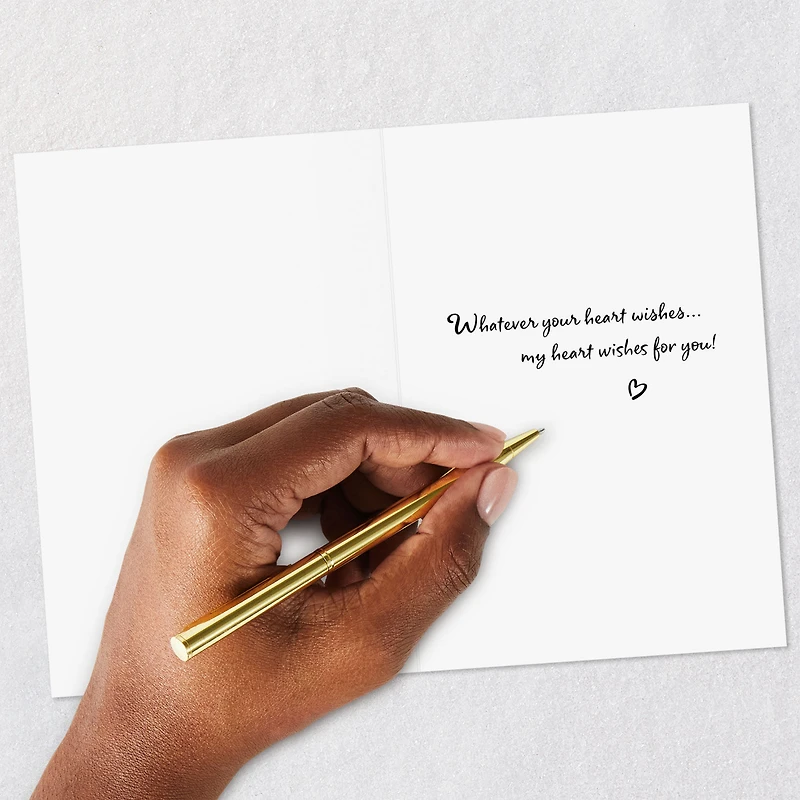 Whatever your heart wishes...
my heart wishes for you!